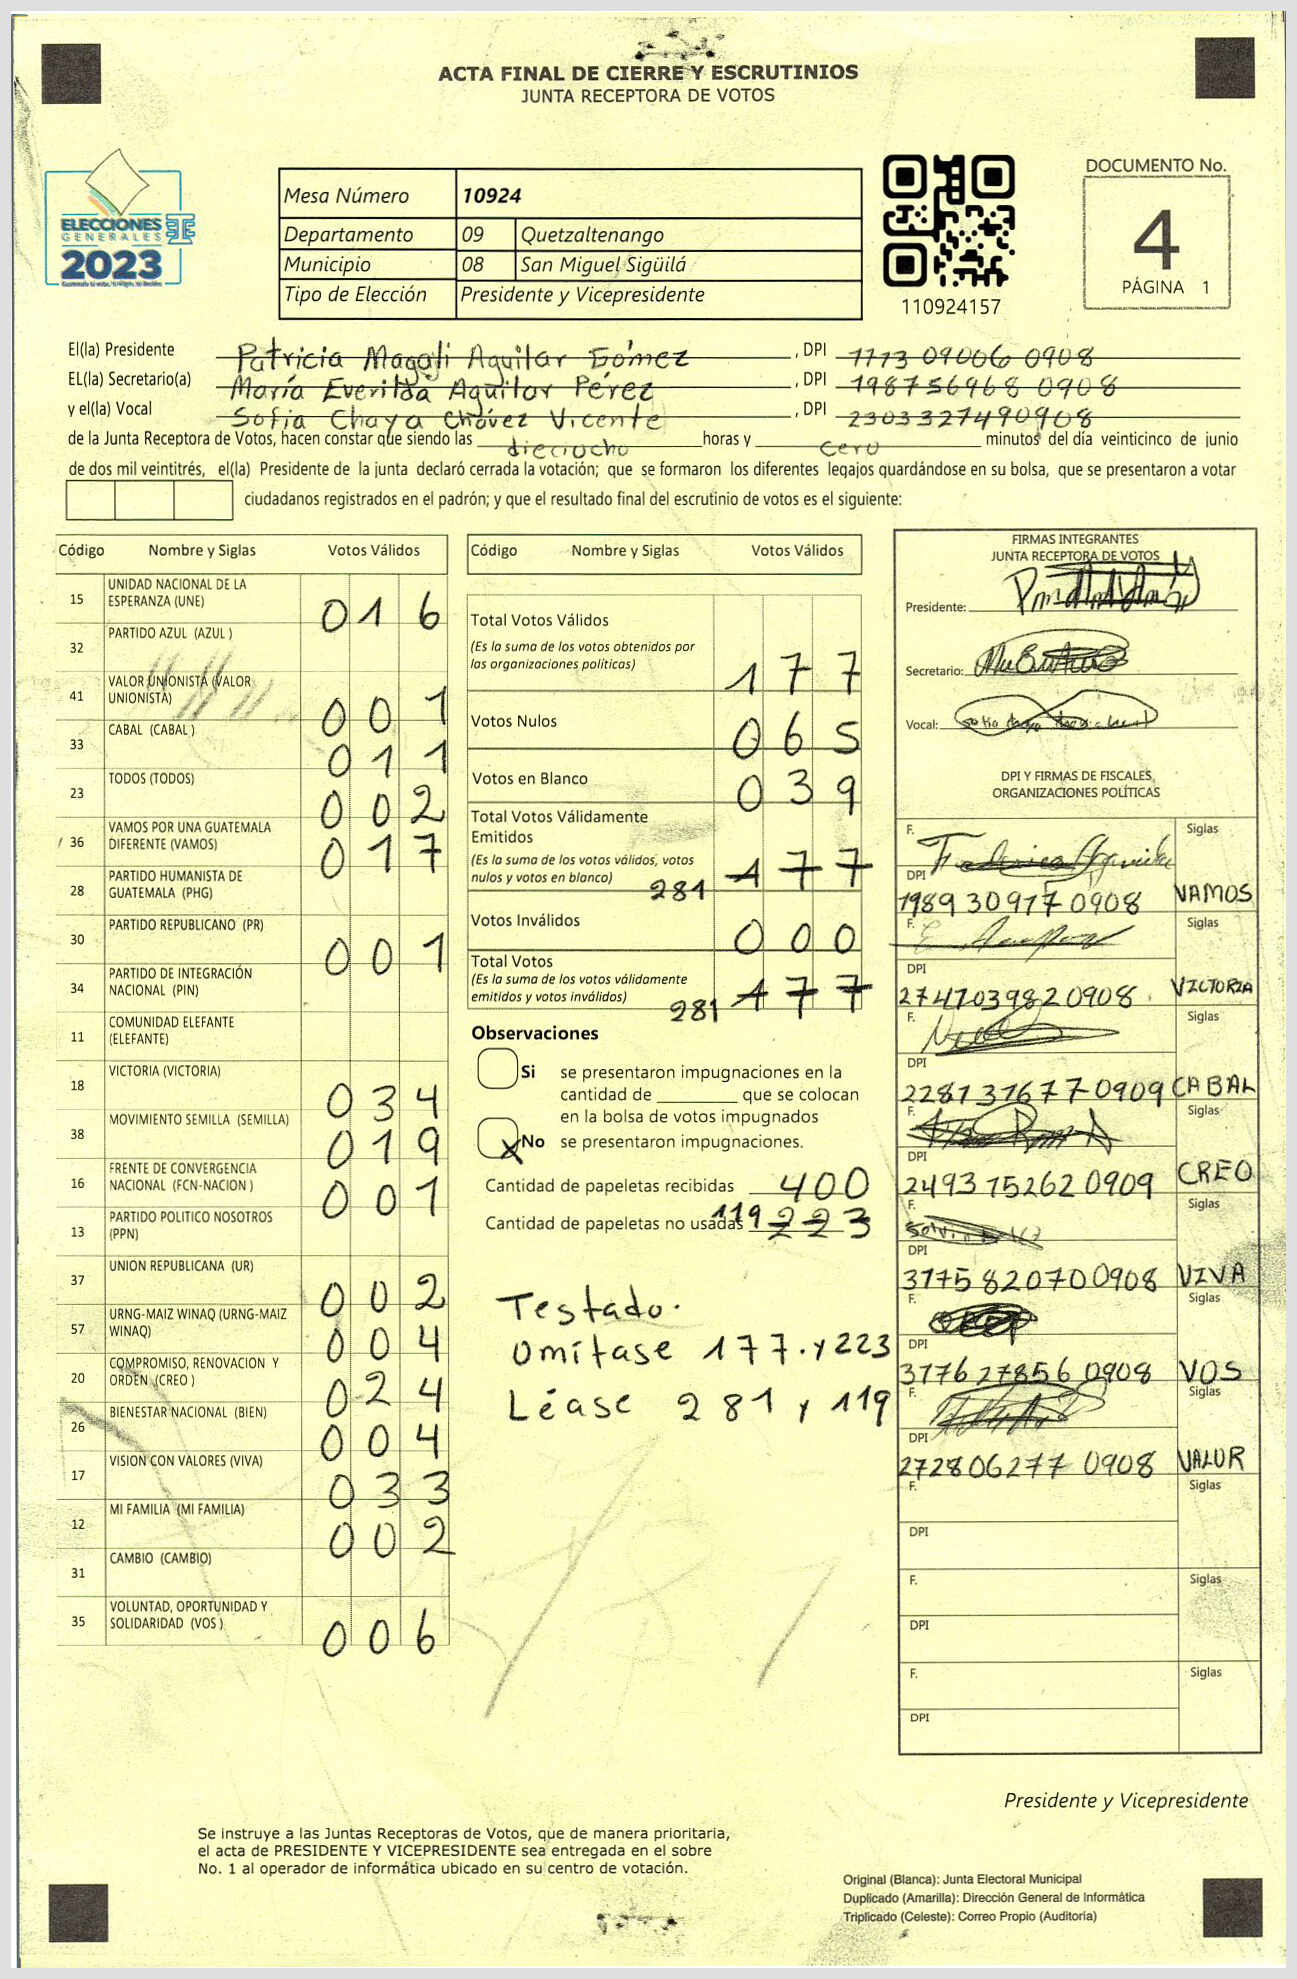 ACTA FINAL DE CIERRE Y ESCRUTINIOS
JUNTA RECEPTORA DE VOTOS
ELECCIONES
GENERALES
2023
Mesa Número 10924
Departamento 09 Quetzaltenango
Municipio 08 San Miguel Sigüilá
Tipo de Elección Presidente y Vicepresidente
110924157
DOCUMENTO No.
4
PÁGINA 1
El(la) Presidente Patricia Magali Aguilar Gómez , DPI 1773 09006 0908
EL(la) Secretario(a) María Everilda Aguilar Pérez , DPI 198756968 0908
y el(la) Vocal Sofia Chaya Chávez Vicente , DPI 2303327490908
de la Junta Receptora de Votos, hacen constar que siendo las dieciocho horas y cero minutos del día veinticinco de junio
de dos mil veintitrés, el(la) Presidente de la junta declaró cerrada la votación; que se formaron los diferentes legajos guardándose en su bolsa, que se presentaron a votar
ciudadanos registrados en el padrón; y que el resultado final del escrutinio de votos es el siguiente:
Código Nombre y Siglas Votos Válidos
15 UNIDAD NACIONAL DE LA ESPERANZA (UNE) 016
32 PARTIDO AZUL (AZUL )
41 VALOR UNIONISTA (VALOR UNIONISTA) 001
33 CABAL (CABAL ) 011
23 TODOS (TODOS) 002
36 VAMOS POR UNA GUATEMALA DIFERENTE (VAMOS) 017
28 PARTIDO HUMANISTA DE GUATEMALA (PHG)
30 PARTIDO REPUBLICANO (PR) 001
34 PARTIDO DE INTEGRACIÓN NACIONAL (PIN)
11 COMUNIDAD ELEFANTE (ELEFANTE)
18 VICTORIA (VICTORIA) 034
38 MOVIMIENTO SEMILLA (SEMILLA) 019
16 FRENTE DE CONVERGENCIA NACIONAL (FCN-NACION ) 001
13 PARTIDO POLITICO NOSOTROS (PPN)
37 UNION REPUBLICANA (UR) 002
57 URNG-MAIZ WINAQ (URNG-MAIZ WINAQ) 004
20 COMPROMISO, RENOVACION Y ORDEN (CREO ) 024
26 BIENESTAR NACIONAL (BIEN) 004
17 VISION CON VALORES (VIVA) 033
12 MI FAMILIA (MI FAMILIA) 002
31 CAMBIO (CAMBIO)
35 VOLUNTAD, OPORTUNIDAD Y SOLIDARIDAD (VOS ) 006
Código Nombre y Siglas Votos Válidos
Total Votos Válidos
(Es la suma de los votos obtenidos por
las organizaciones políticas) 177
Votos Nulos 065
Votos en Blanco 039
Total Votos Válidamente
Emitidos
(Es la suma de los votos válidos, votos
nulos y votos en blanco) 281 177
Votos Inválidos 000
Total Votos
(Es la suma de los votos válidamente
emitidos y votos inválidos) 281 177
Observaciones
Si se presentaron impugnaciones en la
cantidad de ________ que se colocan
en la bolsa de votos impugnados
X No se presentaron impugnaciones.
Cantidad de papeletas recibidas 400
Cantidad de papeletas no usadas 119 223
Testado.
Omítase 177. y 223
Léase 281 y 119
FIRMAS INTEGRANTES
JUNTA RECEPTORA DE VOTOS
Presidente:
Secretario:
Vocal:
DPI Y FIRMAS DE FISCALES
ORGANIZACIONES POLÍTICAS
F. Siglas
DPI 1989 30917 0908 VAMOS
F. Siglas
DPI 2747039820908. VICTORIA
F. Siglas
DPI 228137677 0909 CABAL
F. Siglas
DPI 249375262 0909 CREO
F. Siglas
DPI 3775820700908 VIVA
F. Siglas
DPI 3776278560908 VOS
F. Siglas
DPI 272806277 0908 VALOR
F. Siglas
DPI
F. Siglas
DPI
F. Siglas
DPI
Presidente y Vicepresidente
Se instruye a las Juntas Receptoras de Votos, que de manera prioritaria,
el acta de PRESIDENTE Y VICEPRESIDENTE sea entregada en el sobre
No. 1 al operador de informática ubicado en su centro de votación.
Original (Blanca): Junta Electoral Municipal
Duplicado (Amarilla): Dirección General de Informática
Triplicado (Celeste): Correo Propio (Auditoría)